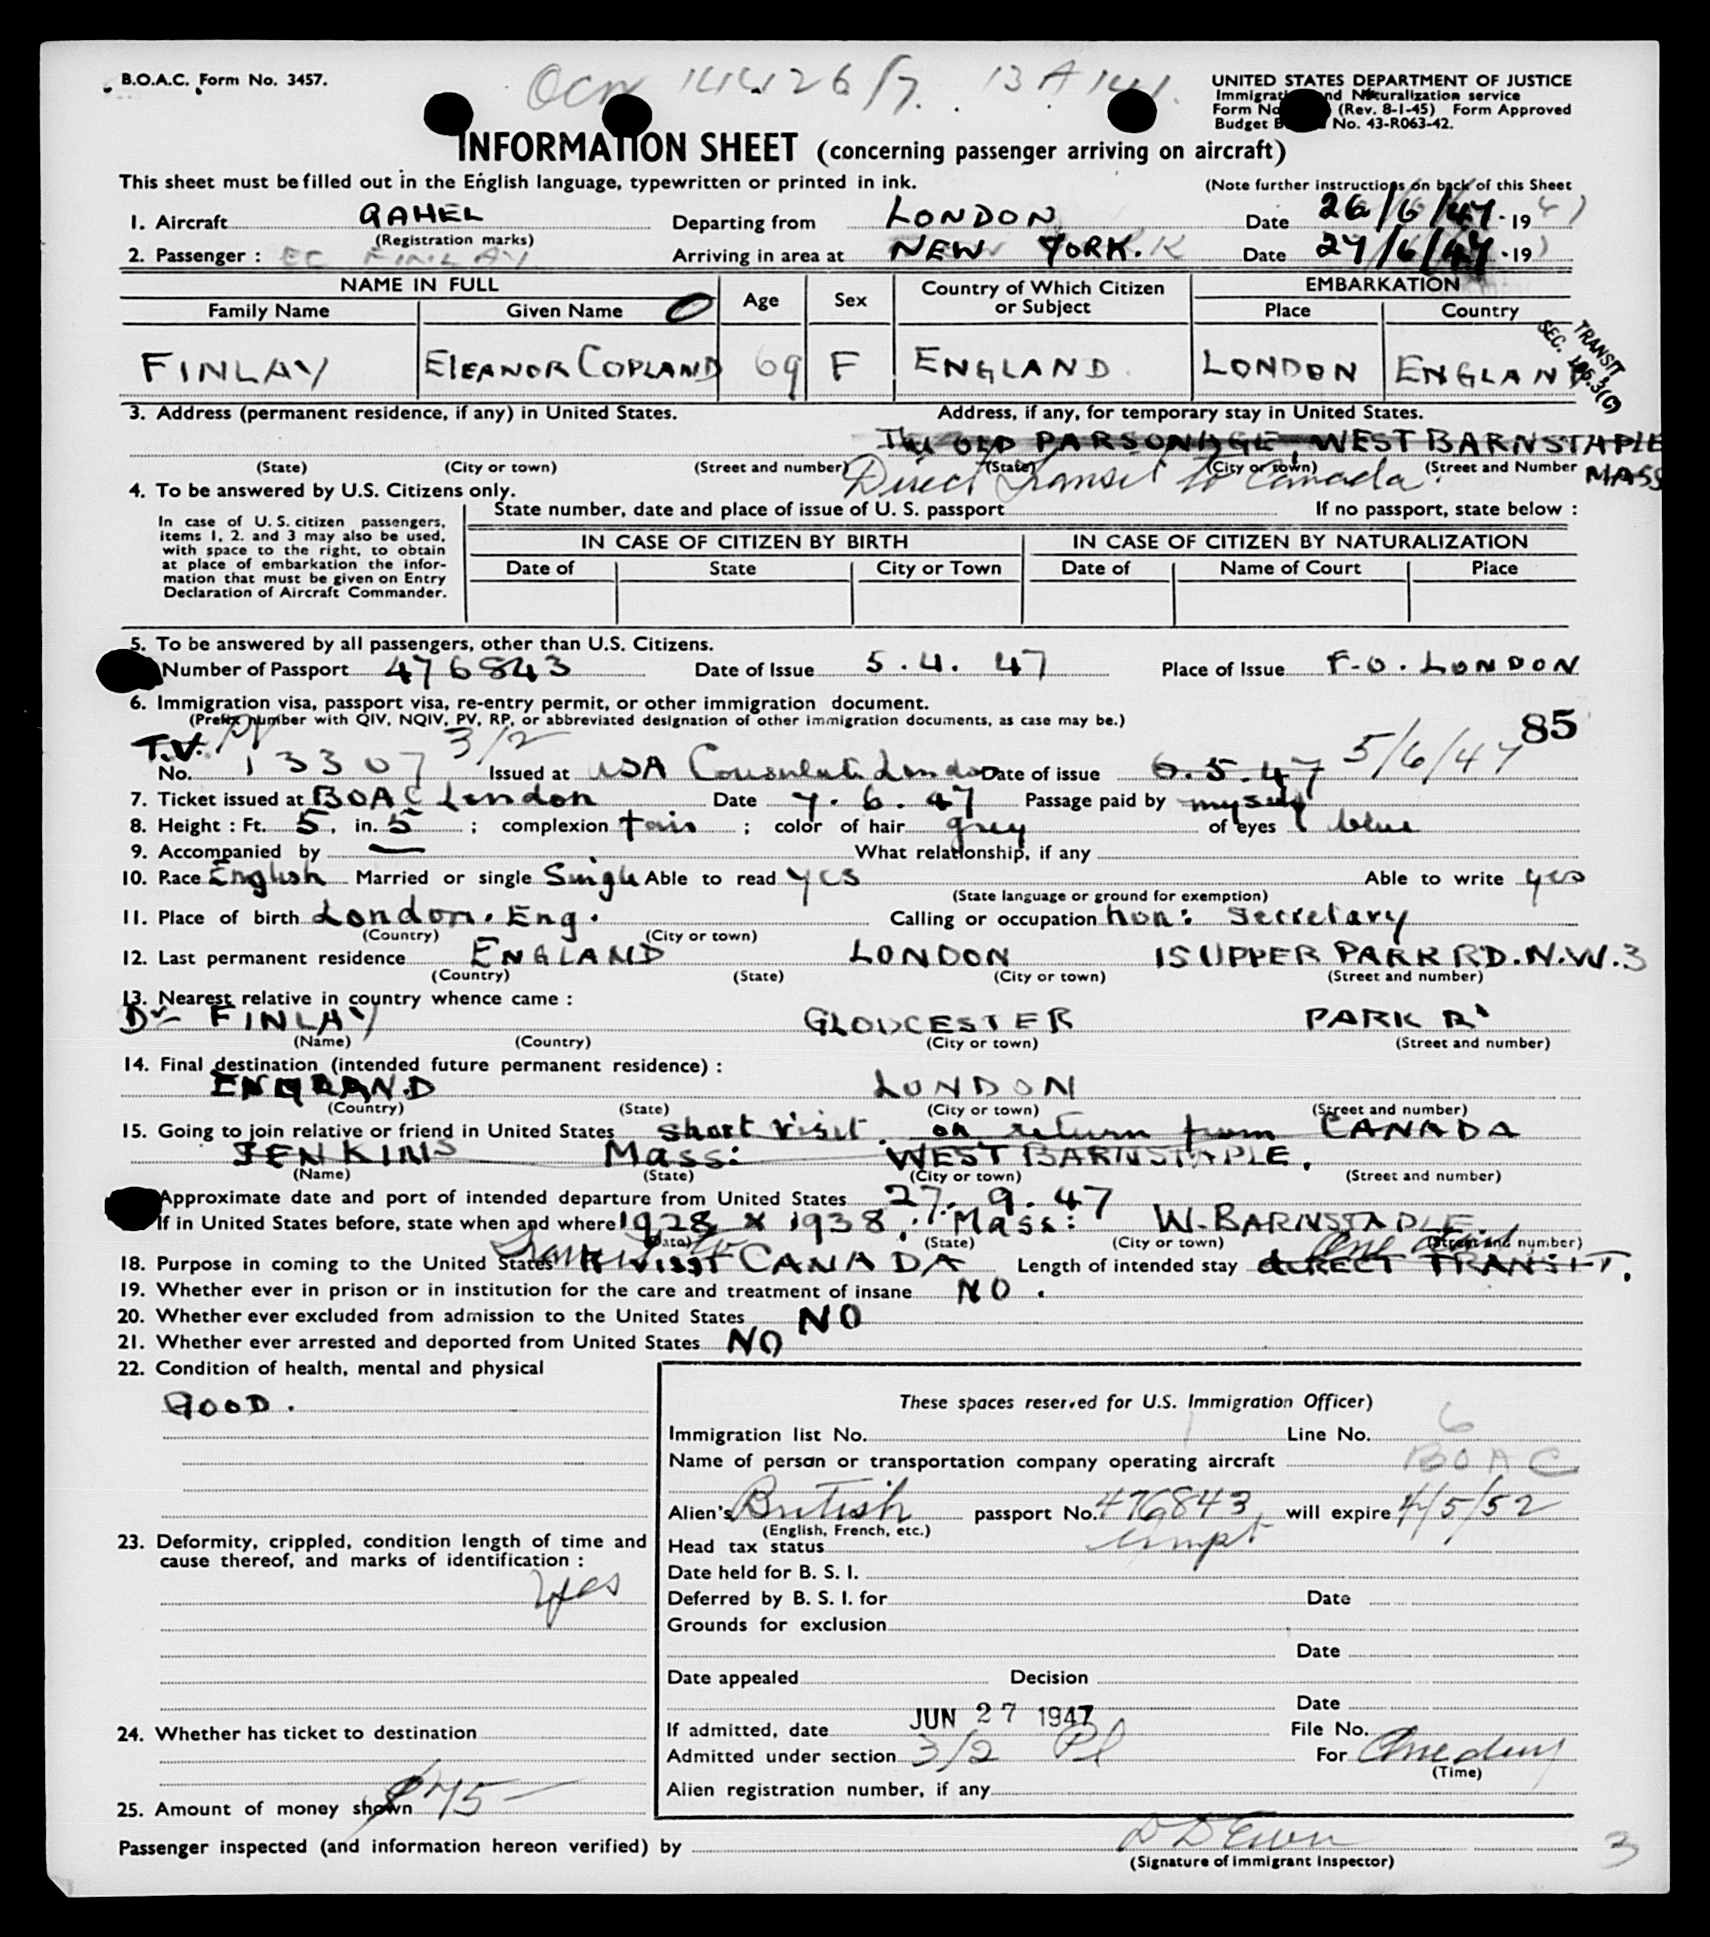 B.O.A.C. Form No. 3457.
UNITED STATES DEPARTMENT OF JUSTICE
Immigration and Naturalization service
Form No (Rev. 8-1-45) Form Approved
Budget B No. 43-R063-42.
INFORMATION SHEET (concerning passenger arriving on aircraft)
This sheet must be filled out in the English language, typewritten or printed in ink. (Note further instructions on back of this Sheet
1. Aircraft GAHEL Departing from LONDON Date 26/6/47 19
(Registration marks)
2. Passenger : EC FINLAY Arriving in area at NEW YORK. Date 27/6/47 19
NAME IN FULL Age Sex Country of Which Citizen or Subject EMBARKATION
Family Name Given Name Place Country
FINLAY ELEANOR COPLAND 69 F ENGLAND LONDON ENGLAND
TRANSIT
SEC.
3. Address (permanent residence, if any) in United States. Address, if any, for temporary stay in United States.
The OLD PARSONAGE, WEST BARNSTAPLE
(State) (City or town) (Street and number) (State) (City or town) (Street and Number MASS
Direct Transit to Canada.
4. To be answered by U.S. Citizens only.
State number, date and place of issue of U. S. passport If no passport, state below :
In case of U. S. citizen passengers,
items 1, 2. and 3 may also be used,
with space to the right, to obtain
at place of embarkation the infor-
mation that must be given on Entry
Declaration of Aircraft Commander.
IN CASE OF CITIZEN BY BIRTH IN CASE OF CITIZEN BY NATURALIZATION
Date of State City or Town Date of Name of Court Place
5. To be answered by all passengers, other than U.S. Citizens.
Number of Passport 476843 Date of Issue 5.4.47 Place of Issue F.O. LONDON
6. Immigration visa, passport visa, re-entry permit, or other immigration document.
(Prefix number with QIV, NQIV, PV, RP, or abbreviated designation of other immigration documents, as case may be.)
85
T.V. PV 3/2 5/6/47
No. 13307 Issued at USA Consulate London Date of issue 6.5.47
7. Ticket issued at BOAC London Date 7.6.47 Passage paid by myself
8. Height : Ft. 5, in. 5 ; complexion fair ; color of hair grey of eyes blue
9. Accompanied by — What relationship, if any
10. Race English Married or single Single Able to read yes Able to write yes
(State language or ground for exemption)
11. Place of birth London. Eng. Calling or occupation hon: Secretary
(Country) (City or town)
12. Last permanent residence ENGLAND LONDON 15 UPPER PARK RD. N.W.3
(Country) (State) (City or town) (Street and number)
13. Nearest relative in country whence came :
Dr FINLAY GLOUCESTER PARK Rd
(Name) (Country) (City or town) (Street and number)
14. Final destination (intended future permanent residence) :
ENGLAND LONDON
(Country) (State) (City or town) (Street and number)
15. Going to join relative or friend in United States short visit on return from CANADA
JENKINS Mass: WEST BARNSTAPLE.
(Name) (State) (City or town) (Street and number)
Approximate date and port of intended departure from United States 27.9.47
If in United States before, state when and where 1928 x 1938. Mass: W. BARNSTAPLE
(Date) (State) (City or town) (Street and number)
Transit to One day
18. Purpose in coming to the United States visit CANADA Length of intended stay direct TRANSIT.
19. Whether ever in prison or in institution for the care and treatment of insane NO.
20. Whether ever excluded from admission to the United States NO
21. Whether ever arrested and deported from United States NO
22. Condition of health, mental and physical
GOOD.
23. Deformity, crippled, condition length of time and
cause thereof, and marks of identification :
24. Whether has ticket to destination
yes
25. Amount of money shown $75—
These spaces reserved for U.S. Immigration Officer)
Immigration list No. 1 Line No. 6
Name of person or transportation company operating aircraft BOAC
Alien's British passport No. 476843 will expire 4/5/52
(English, French, etc.)
Head tax status exmpt
Date held for B. S. I.
Deferred by B. S. I. for Date
Grounds for exclusion
Date
Date appealed Decision
Date
If admitted, date JUN 27 1947 File No.
Admitted under section 3/2 For One day
(Time)
Alien registration number, if any
Passenger inspected (and information hereon verified) by
(Signature of Immigrant Inspector)
3